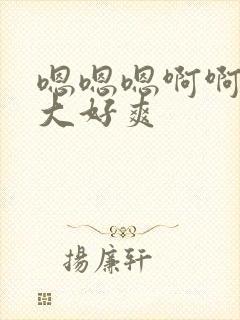 嗯嗯嗯啊啊
大好爽
揚廉轩